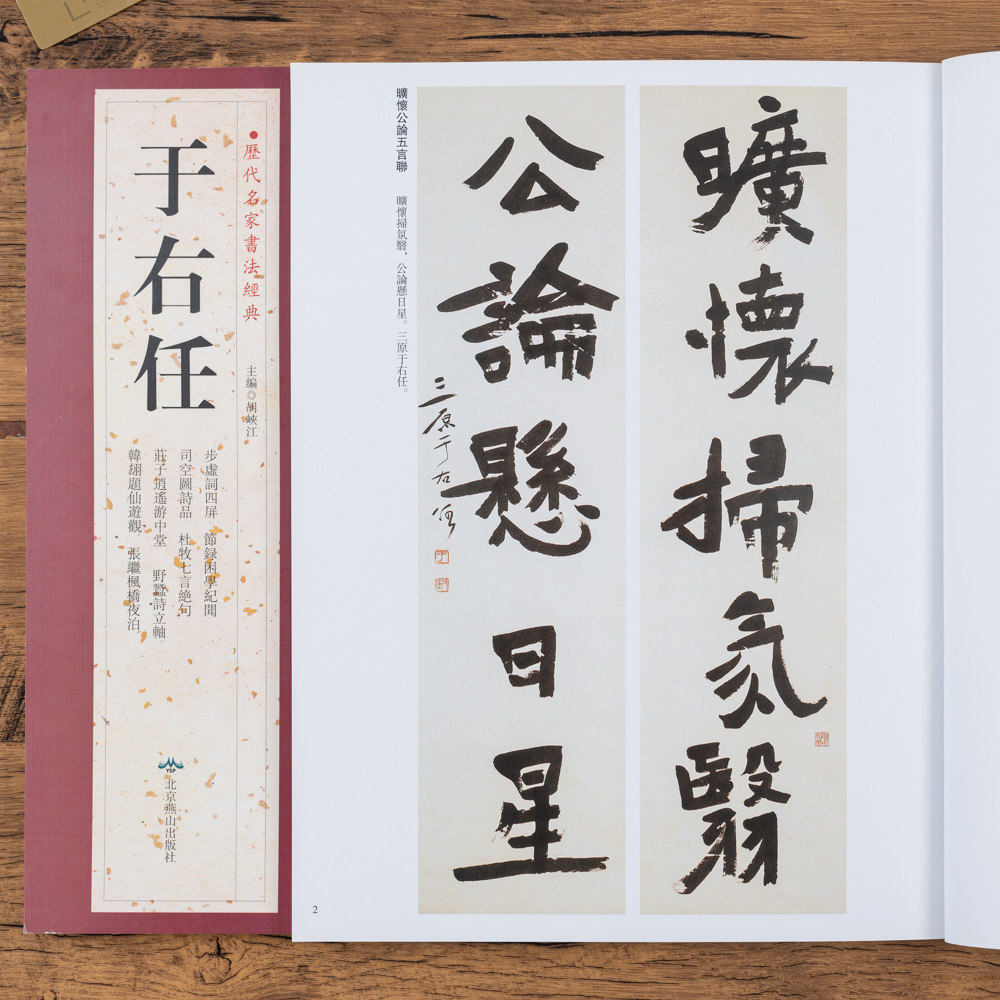 歷代名家書法經典
于右任
主編◎胡峽江
步虛詞四屏 節録困學紀聞
司空圖詩品 杜牧七言絶句
莊子逍遙游中堂 野蠶詩立軸
韓翃題仙遊觀 張繼楓橋夜泊
YSP
北京燕山出版社
曠懷掃氛翳
公論懸日星
三原于右任
曠懷公論五言聯
曠懷掃氛翳、公論懸日星。三原于右任。
2